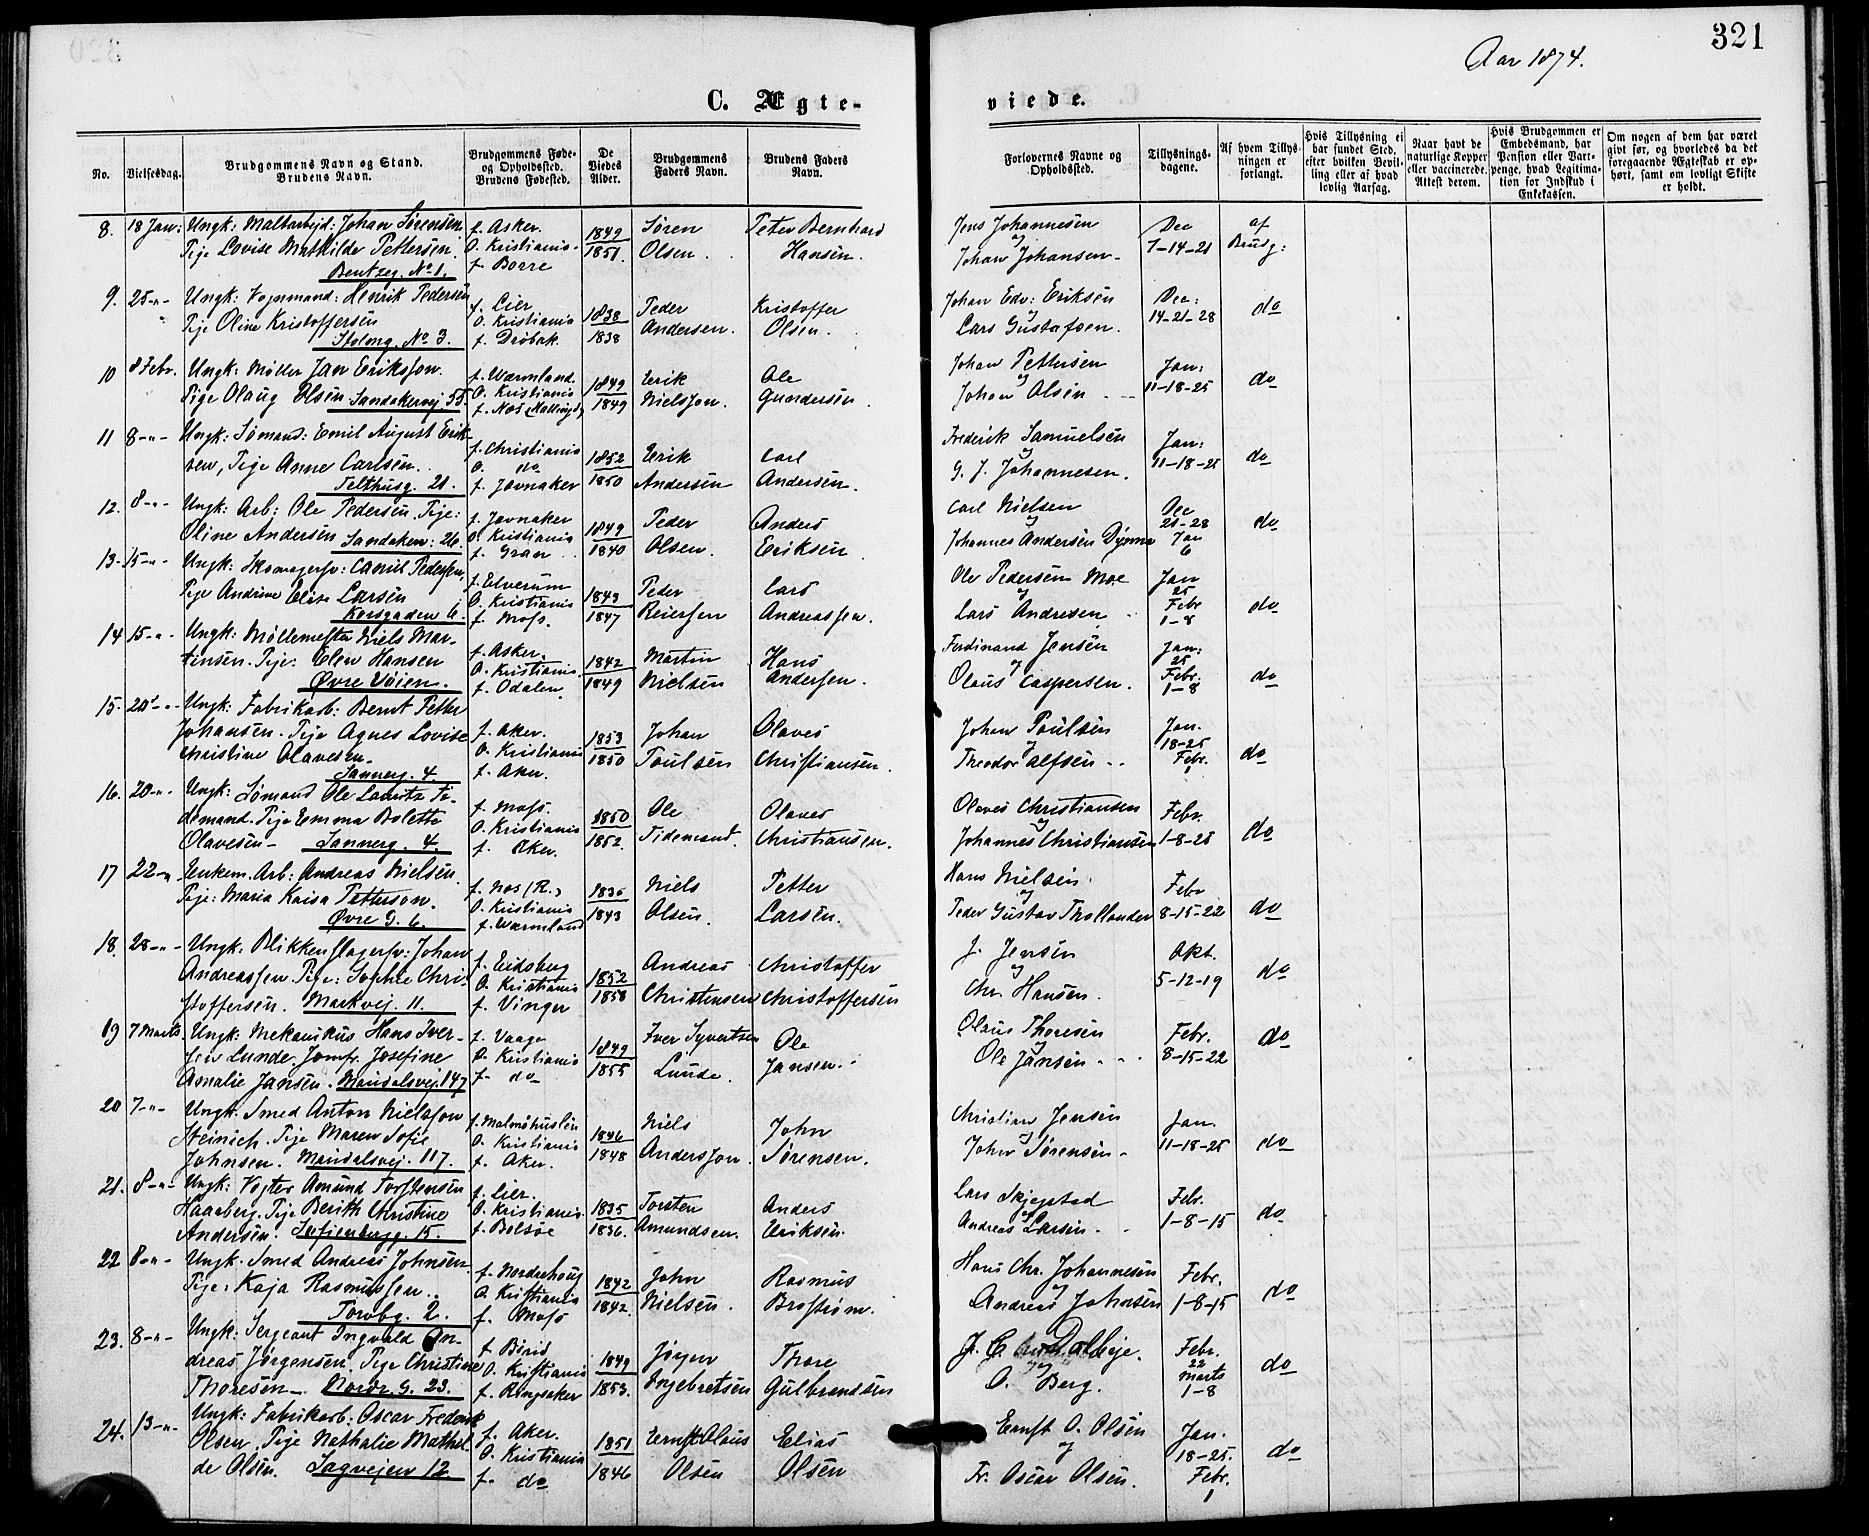 321
Aar 1874.
C. Ægte-
viede.
No.
Vielsesdag.
Brudgommens Navn og Stand.
Brudens Navn.
Brudgommens Føde-
og Opholdssted.
Brudens Fødested.
De
Viedes
Alder.
Brudgommens
Faders Navn.
Brudens Faders
Navn.
Forlovernes Navne og
Opholdssted.
Tillysnings-
dagene.
Af hvem Tillys-
ningen er
forlangt.
Hvis Tillysning ei
har fundet Sted,
efter hvilken Bevil-
ling eller af hvad
lovlig Aarsag.
Naar havt de
naturlige Kopper
eller vaccinerede.
Attest derom.
Hvis Brudgommen er
Embedsmand, har
Pension eller Vart-
penge, hvad Legitima-
tion for Indskud i
Enkekassen.
Om nogen af dem har været
givt før, og hvorledes da det
foregaaende Ægteskab er op-
hørt, samt om lovligt Skifte
er holdt.
8. 18 Jan: Ungk: Maltarbejd: Johan Sørensen f. Asker. 1849 Søren Peter Bernhard Jens Johannesen Dec af
Pige Lovise Mathilde Pettersen. O. Kristiania. 1851. Olsen. Hansen. og Johan Johansen 7-14-21 Brudg:
Bentzeg. No 1. f. Borre
9. 25-"- Ungk: Vognmand: Henrik Pedersen f. Lier 1838 Peder Kristoffer Johan Edv: Eriksen Dec: do
Pige Oline Kristoffersen O. Kristiania 1838 Andersen. Olsen. og Lars Gustafsen. 14-21-28
Stolmg. No 3. f. Drøbak.
10 8 Febr. Ungk: Møller Jan Eriksson. f. Wærmland. 1849 Erik Ole Johan Pettersen Jan: do
Pige Olaug Olsen Sandakervej. 55. O. Kristiania 1849 Nielsson. Gundersen. og Johan Olsen 11-18-25
f. Næs (Hallingd)
11 8-"- Ungk: Sømand: Emil August Erik- f. Christiania 1852 Erik Carl Frederik Samuelsen Jan: do
sen, Pige Anne Carlsen. O. do 1850 Andersen Andersen. og G. J. Johannesen. 11-18-25
Telthusg. 21. f. Jævnaker
12. 8-"- Ungk: Arb: Ole Pedersen. Pige: f. Jævnaker 1849 Peder Anders Carl Nielsen Dec do
Oline Andersen Sandaker: 26. O. Kristiania 1840 Olsen. Eriksen og Johannes Andersen Dynna 21-28 Jan
f. Gran 6
13. 15-"- Ungk: Skomagersv: Daniel Pedersen, f. Elverum 1843 Peder Lars Ole Pedersen Moe Jan do
Pige Andrine Elise Larsen O. Kristiania 1847 Reiersen Andreassen. og Lars Andresen 25 Febr
Korsgaden 6. f. Moss. 1-8
14 15-"- Ungk: Møllemester Niels Mar- f. Asker. 1842 Martin Hans Ferdinand Jensen Jan: do
tinsen. Pige: Elen Hansen O. Kristiania. 1849 Nielsen Andersen. og Olaus Caspersen. 25 Febr.
Øvre Vøien. f. Odalen. 1-8
15. 20-"- Ungk: Fabrikarb: Bernt Petter f. Aker. 1853 Johan Olaves Johan Poulsen Jan. do
Johansen. Pige Agnes Lovise O. Kristiania 1850 Poulsen Christiansen. og Theodor Alfsen 18-25
Christine Olavesen. f. Aker. Febr.
Sannerg. 4. 1
16. 20-"- Ungk: Sømand Ole Lauritz Ti- f. Moss. 1850 Ole Olaves Olaves Christiansen Febr. do
demand. Pige Emma Bolette O. Kristiania 1852. Tidemand. Christiansen. og Johannes Christiansen 1-8-25
Olavesen- Sannerg. 4. f. Aker.
17 22-"- Enkem. Arb: Andreas Nielsen. f. Nes (R.) Niels Petter Hans Nielsen Febr do
Pige: Maria Kaisa Petterson. O. Kristiania 1843 Olsen. Larsen. og Peder Gustav Thollander 8-15-22
Øvre G. 6. f. Wærmland
18. 28-"- Ungk: Blikkenslagersv: Johan f. Eidsberg 1852 Andreas Christoffer J. Jensen Okt. do
Andreassen. Pige: Sophie Chri- O. Kristiania 1858 Christensen Christoffersen og Chr. Hansen. 5-12-19
stoffersen. Markvej. 11. f. Vinger
19 7 Marts Ungk: Mekanikus Hans Iver- f. Vaage 1849 Iver Syvertsen Ole Olaus Thoresen Febr. do
sen Lunde, Jomfr. Josefine O. Kristiania 1855 Lunde. Jansen. og Ole Jansen 8-15-22
Amalie Jansen. Maridalsvej. 147 f. do
20 7-"- Ungk: Smed Anton Nielsson f. Malmöhuslän 1846 Niels John Christian Jensen Jan. do
Heinich. Pige Maren Sofie O. Kristiania 1848 Andersson. Sørensen. og John Sørensen 11-18-25
Johnsen. Maridalsvej. 117. f. Aker.
21. 8-"- Ungk: Vogter Amund Torstensen f. Lier. 1835 Torsten Anders Lars Skjegstad Febr. do
Haaberg. Pige Berith Christine O. Kristiania. 1836. Amundsen. Eriksen. og Andreas Larsen. 1-8-15
Andersen. Sofienbergg. 15. f. Bolsøe
22 8-"- Ungk. Smed Andreas Johnsen. f. Norderhoug 1842 John Rasmus Hans Chr. Johannesen Febr. do
Pige: Kaja Rasmussen. O. Kristiania 1842. Nielsen. Brostrøm. og Andreas Johnsen 1-8-15
Torvbg. 2. f. Moss
23. 8-"- Ungk: Sergeant Ingvald An- f. Birid 1849 Jørgen Thore J. C. Dalbye. Febr. do
dreas Jørgensen. Pige Christine O. Kristiania 1853. Ingebretsen Gulbrandsen og O. Berg. 22 Marts
Thoresen. Nordr. G. 23. f. Ringsaker 1-8
24. 13-"- Ungk: Fabrikarb. Oscar Frederik f. Aker. 1851 Ernst Olaus Elias Ernst O. Olsen Jan. do
Olsen. Pige Nathalie Mathil- O. Kristiania 1846 Olsen Olsen og Fr. Oscar Olsen. 18-25. Febr.
de Olsen. Sagvejen 12 f. do 1